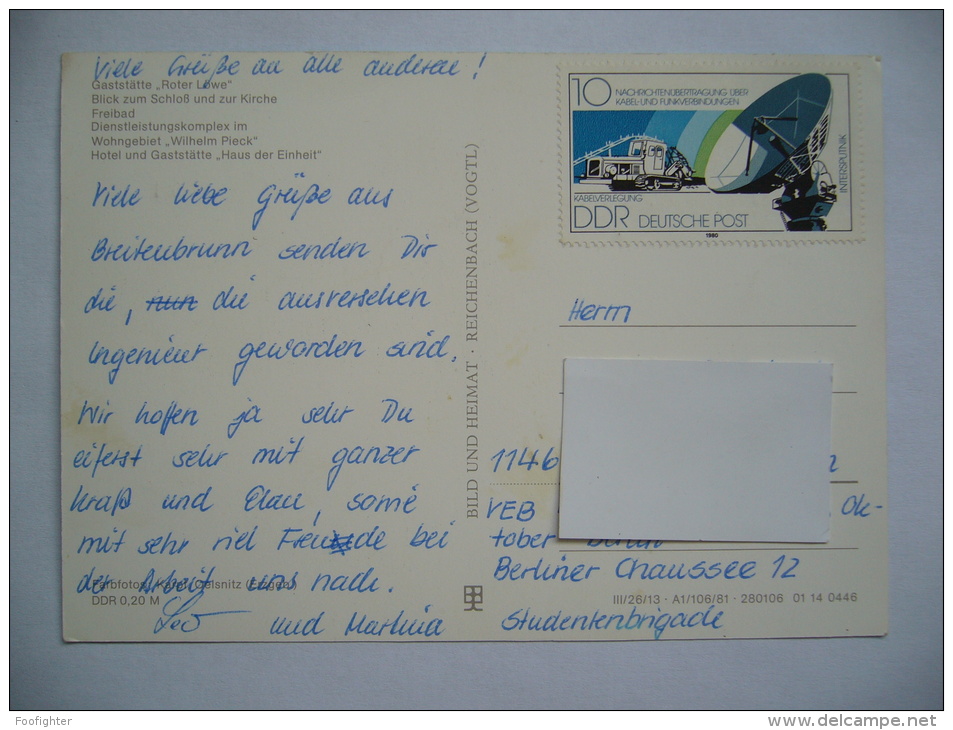 Viele Grüße an alle anderen!
Gaststätte „Roter Löwe"
Blick zum Schloß und zur Kirche
Freibad
Dienstleistungskomplex im
Wohngebiet „Wilhelm Pieck"
Hotel und Gaststätte „Haus der Einheit"
Viele liebe Grüße aus
Breitenbrunn senden Dir
die, nun die ausversehen
Ingenieur geworden sind.
Wir hoffen ja sehr Du
eiferst sehr mit ganzer
Kraft und Elan, sowie
mit sehr viel Freude bei
der Arbeit uns nach.
Farbfotos: Oelsnitz (Erzgeb.)
DDR 0,20 M
Leo und Martina
BILD UND HEIMAT · REICHENBACH (VOGTL)
10 NACHRICHTENÜBERTRAGUNG ÜBER
KABEL- UND FUNKVERBINDUNGEN
INTERSPUTNIK
KABELVERLEGUNG
DDR DEUTSCHE POST
1980
Herrn
1146
VEB Ok-
tober Berlin
Berliner Chaussee 12
III/26/13 · A1/106/81 · 280106 01 14 0446
Studentenbrigade
Foofighter
www.delcampe.net